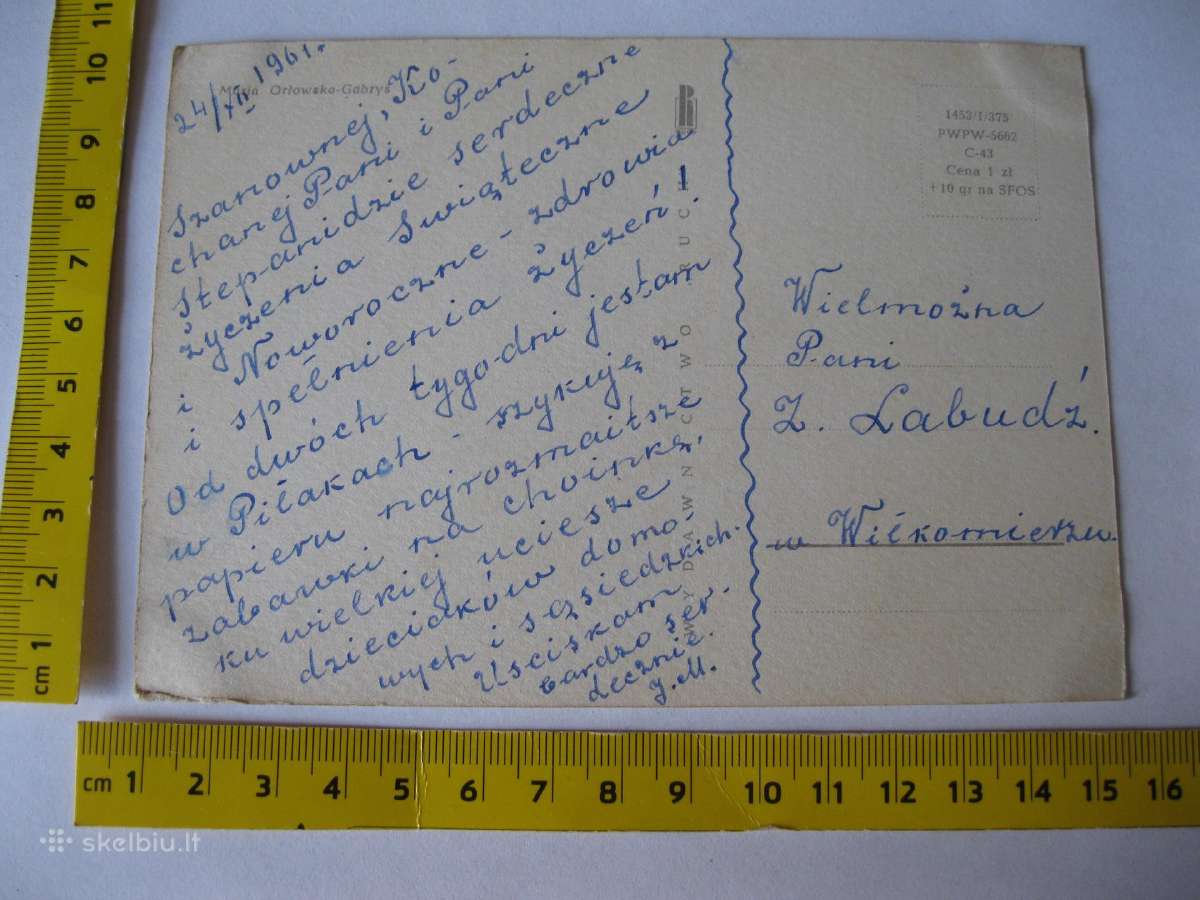 24/XII 1961r.
Maria Orłowska-Gabryś
Szanownej, Ko-
chanej Pani i Pani
Stepanidzie serdeczne
życzenia Świąteczne
i Noworoczne - zdrowia
i spełnienia życzeń!
Od dwóch tygodni jestam
w Piłakach - szykuję z
papieru najrozmaitsze
zabawki na choinkę,
ku wielkiej uciesze
dzieciaków domo-
wych i sąsiedzkich.
Uściskam
bardzo ser-
decznie.
J.M.
WYDAWNICTWO RUCH
1453/I/375
PWPW-5662
C-43
Cena 1 zł
+10 gr na SFOS
Wielmożna
Pani
Z. Łabudź.
w Wiłkomierzu.
11
10
9
8
7
6
5
4
3
2
1
cm
cm 1 2 3 4 5 6 7 8 9 10 11 12 13 14 15 16
skelbiu.lt